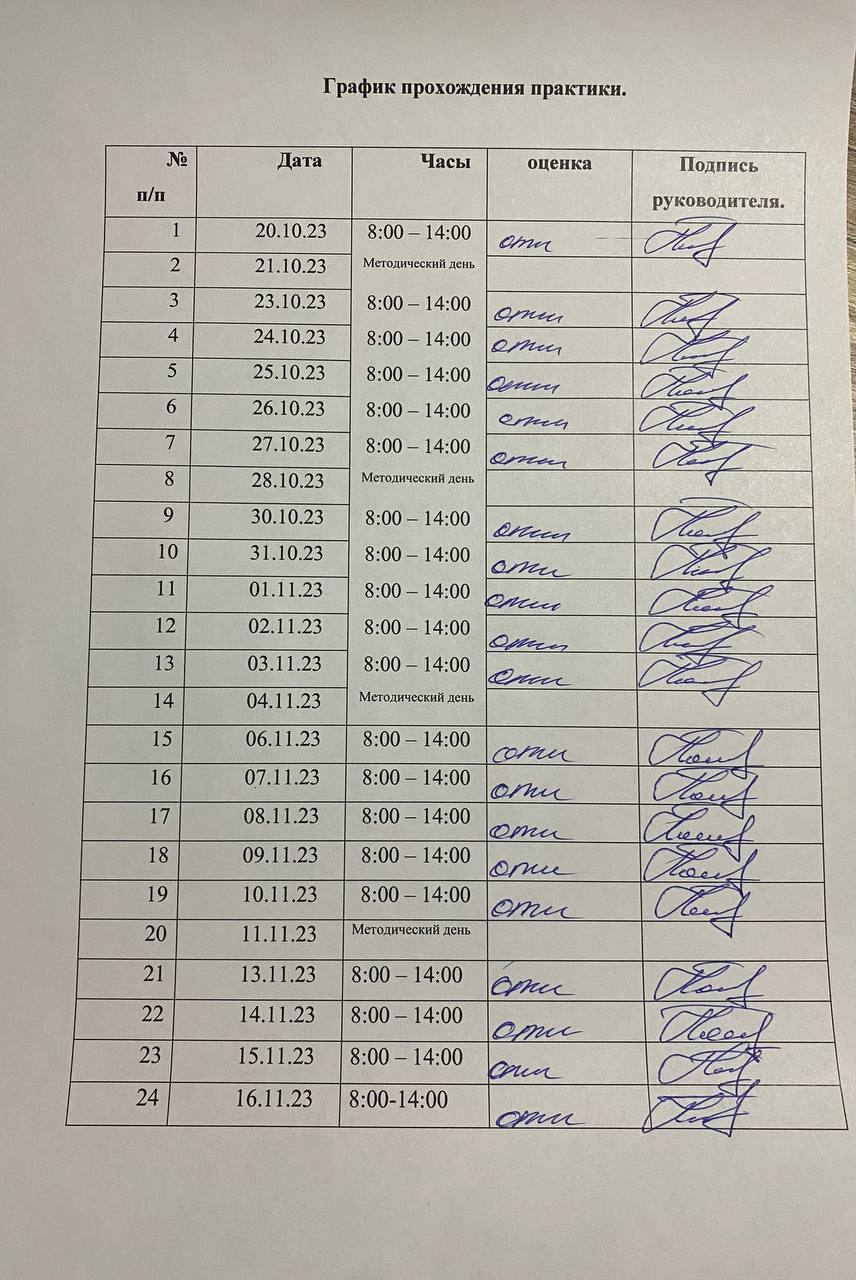 График прохождения практики.
№ п/п Дата Часы оценка Подпись руководителя.
1 20.10.23 8:00 – 14:00 отл
2 21.10.23 Методический день
3 23.10.23 8:00 – 14:00 отл
4 24.10.23 8:00 – 14:00 отл
5 25.10.23 8:00 – 14:00 отл
6 26.10.23 8:00 – 14:00 отл
7 27.10.23 8:00 – 14:00 отл
8 28.10.23 Методический день
9 30.10.23 8:00 – 14:00 отл
10 31.10.23 8:00 – 14:00 отл
11 01.11.23 8:00 – 14:00 отл
12 02.11.23 8:00 – 14:00 отл
13 03.11.23 8:00 – 14:00 отл
14 04.11.23 Методический день
15 06.11.23 8:00 – 14:00 отл
16 07.11.23 8:00 – 14:00 отл
17 08.11.23 8:00 – 14:00 отл
18 09.11.23 8:00 – 14:00 отл
19 10.11.23 8:00 – 14:00 отл
20 11.11.23 Методический день
21 13.11.23 8:00 – 14:00 отл
22 14.11.23 8:00 – 14:00 отл
23 15.11.23 8:00 – 14:00 отл
24 16.11.23 8:00-14:00 отл